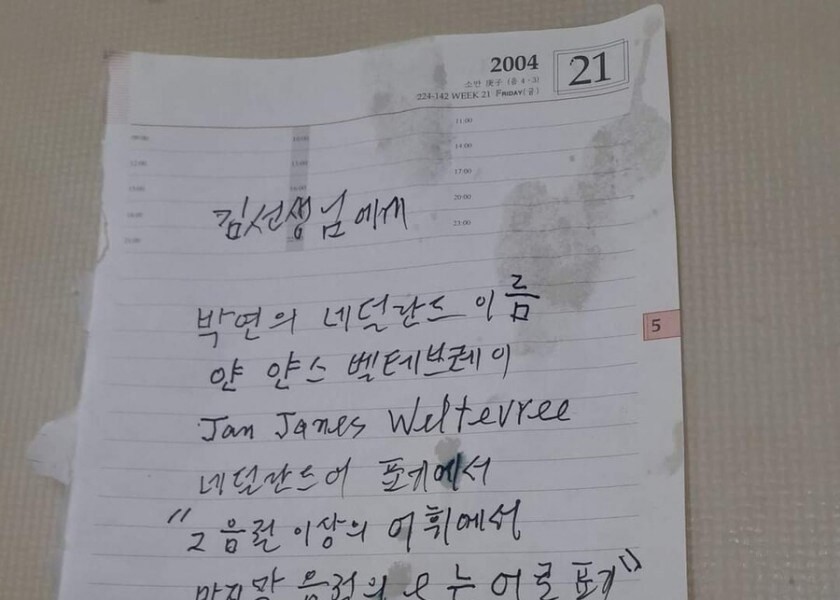 2004
21
224-142 WEEK 21 FRIDAY(금)
11:00
14:00
17:00
20:00
23:00
김선생님에게
박연의 네덜란드 이름
얀 얀스 벨테브레이
Jan Janes Weltevree
5
네덜란드어 표기에서
"2 음절 이상의 어휘에서
마지막 음절의 e 는 어로 표기"